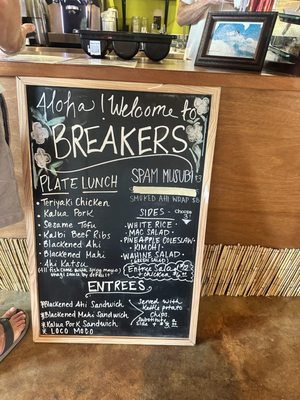 Aloha! Welcome to
BREAKERS
PLATE LUNCH
Teriyaki Chicken
Kalua Pork
Sesame Tofu
Kalbi Beef Ribs
Blackened Ahi
Blackened Mahi
Ahi Katsu
(All fish come with spicy mayo/
unagi sauce by default)
SPAM MUSUBI $3
SMOKED AHI WRAP $8
SIDES - Choose
- WHITE RICE -
- MAC SALAD -
- PINEAPPLE COLESLAW -
- KIMCHI -
- WAHINE SALAD -
(GREEN SALAD)
Entree Salad
+ chicken
ENTREES
Blackened Ahi Sandwich
Blackened Mahi Sandwich
Kalua Pork Sandwich
LOCO MOCO
Served with
kettle potato
chips
substitute a
side +